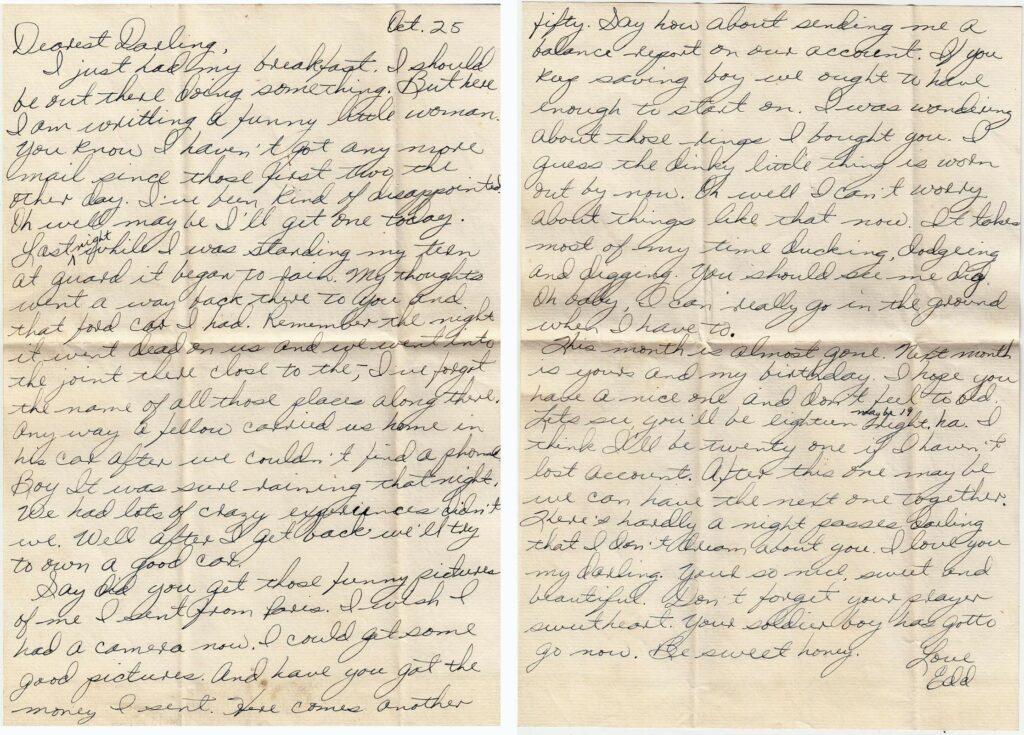 Oct. 25
Dearest Darling,
I just had my breakfast. I should
be out there doing something. But here
I am writting a funny little woman.
You know I haven't got any more
mail since those first two the
other day. I've been kind of disappointed.
Oh well may be I'll get one today.
Last night while I was standing my turn
at guard it began to rain. My thoughts
went a way back there to you and
that ford car I had. Remember the night
it went dead on us and we went into
the joint there close to the,- I've forgot
the name of all those places along there.
Any way a fellow carried us home in
his car after we couldn't find a phone
Boy It was sure raining that night.
We had lots of crazy experiences didn't
we. Well after I get back we'll try
to own a good car.
Say did you get those funny pictures
of me I sent from Paris. I wish I
had a camera now. I could get some
good pictures. And have you got the
money I sent. Here comes another
fifty. Say how about sending me a
balance report on our account. If you
keep saving boy we ought to have
enough to start on. I was wondering
about those rings I bought you. I
guess the dinky little thing is worn
out by now. Oh well I can't worry
about things like that now. It takes
most of my time ducking, dodgeing
and digging. You should see me dig.
Oh baby, I can really go in the ground
when I have to.
This month is almost gone. Next month
is yours and my birthday. I hope you
have a nice one and don't feel to old.
Lets see, you'll be eighteen maybe 19 Right, ha. I
think I'll be twenty one if I haven't
lost account. After this one may be
we can have the next one together.
There's hardly a night passes darling
that I don't dream about you. I love you
my darling. Your so nice, sweet and
beautiful. Don't forget your prayer
sweetheart. Your soldier boy has gotto
go now. Be sweet honey.
Love
Edd